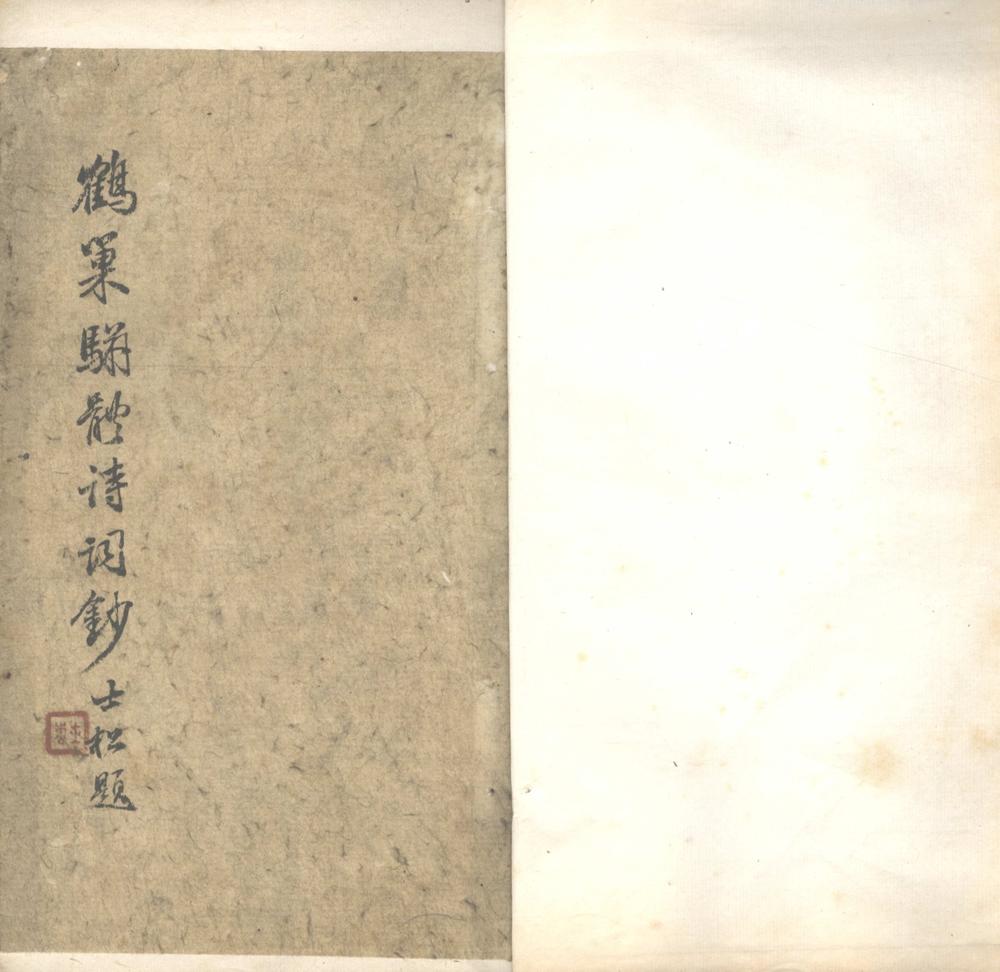 鶴巢駢體诗词鈔
士松題